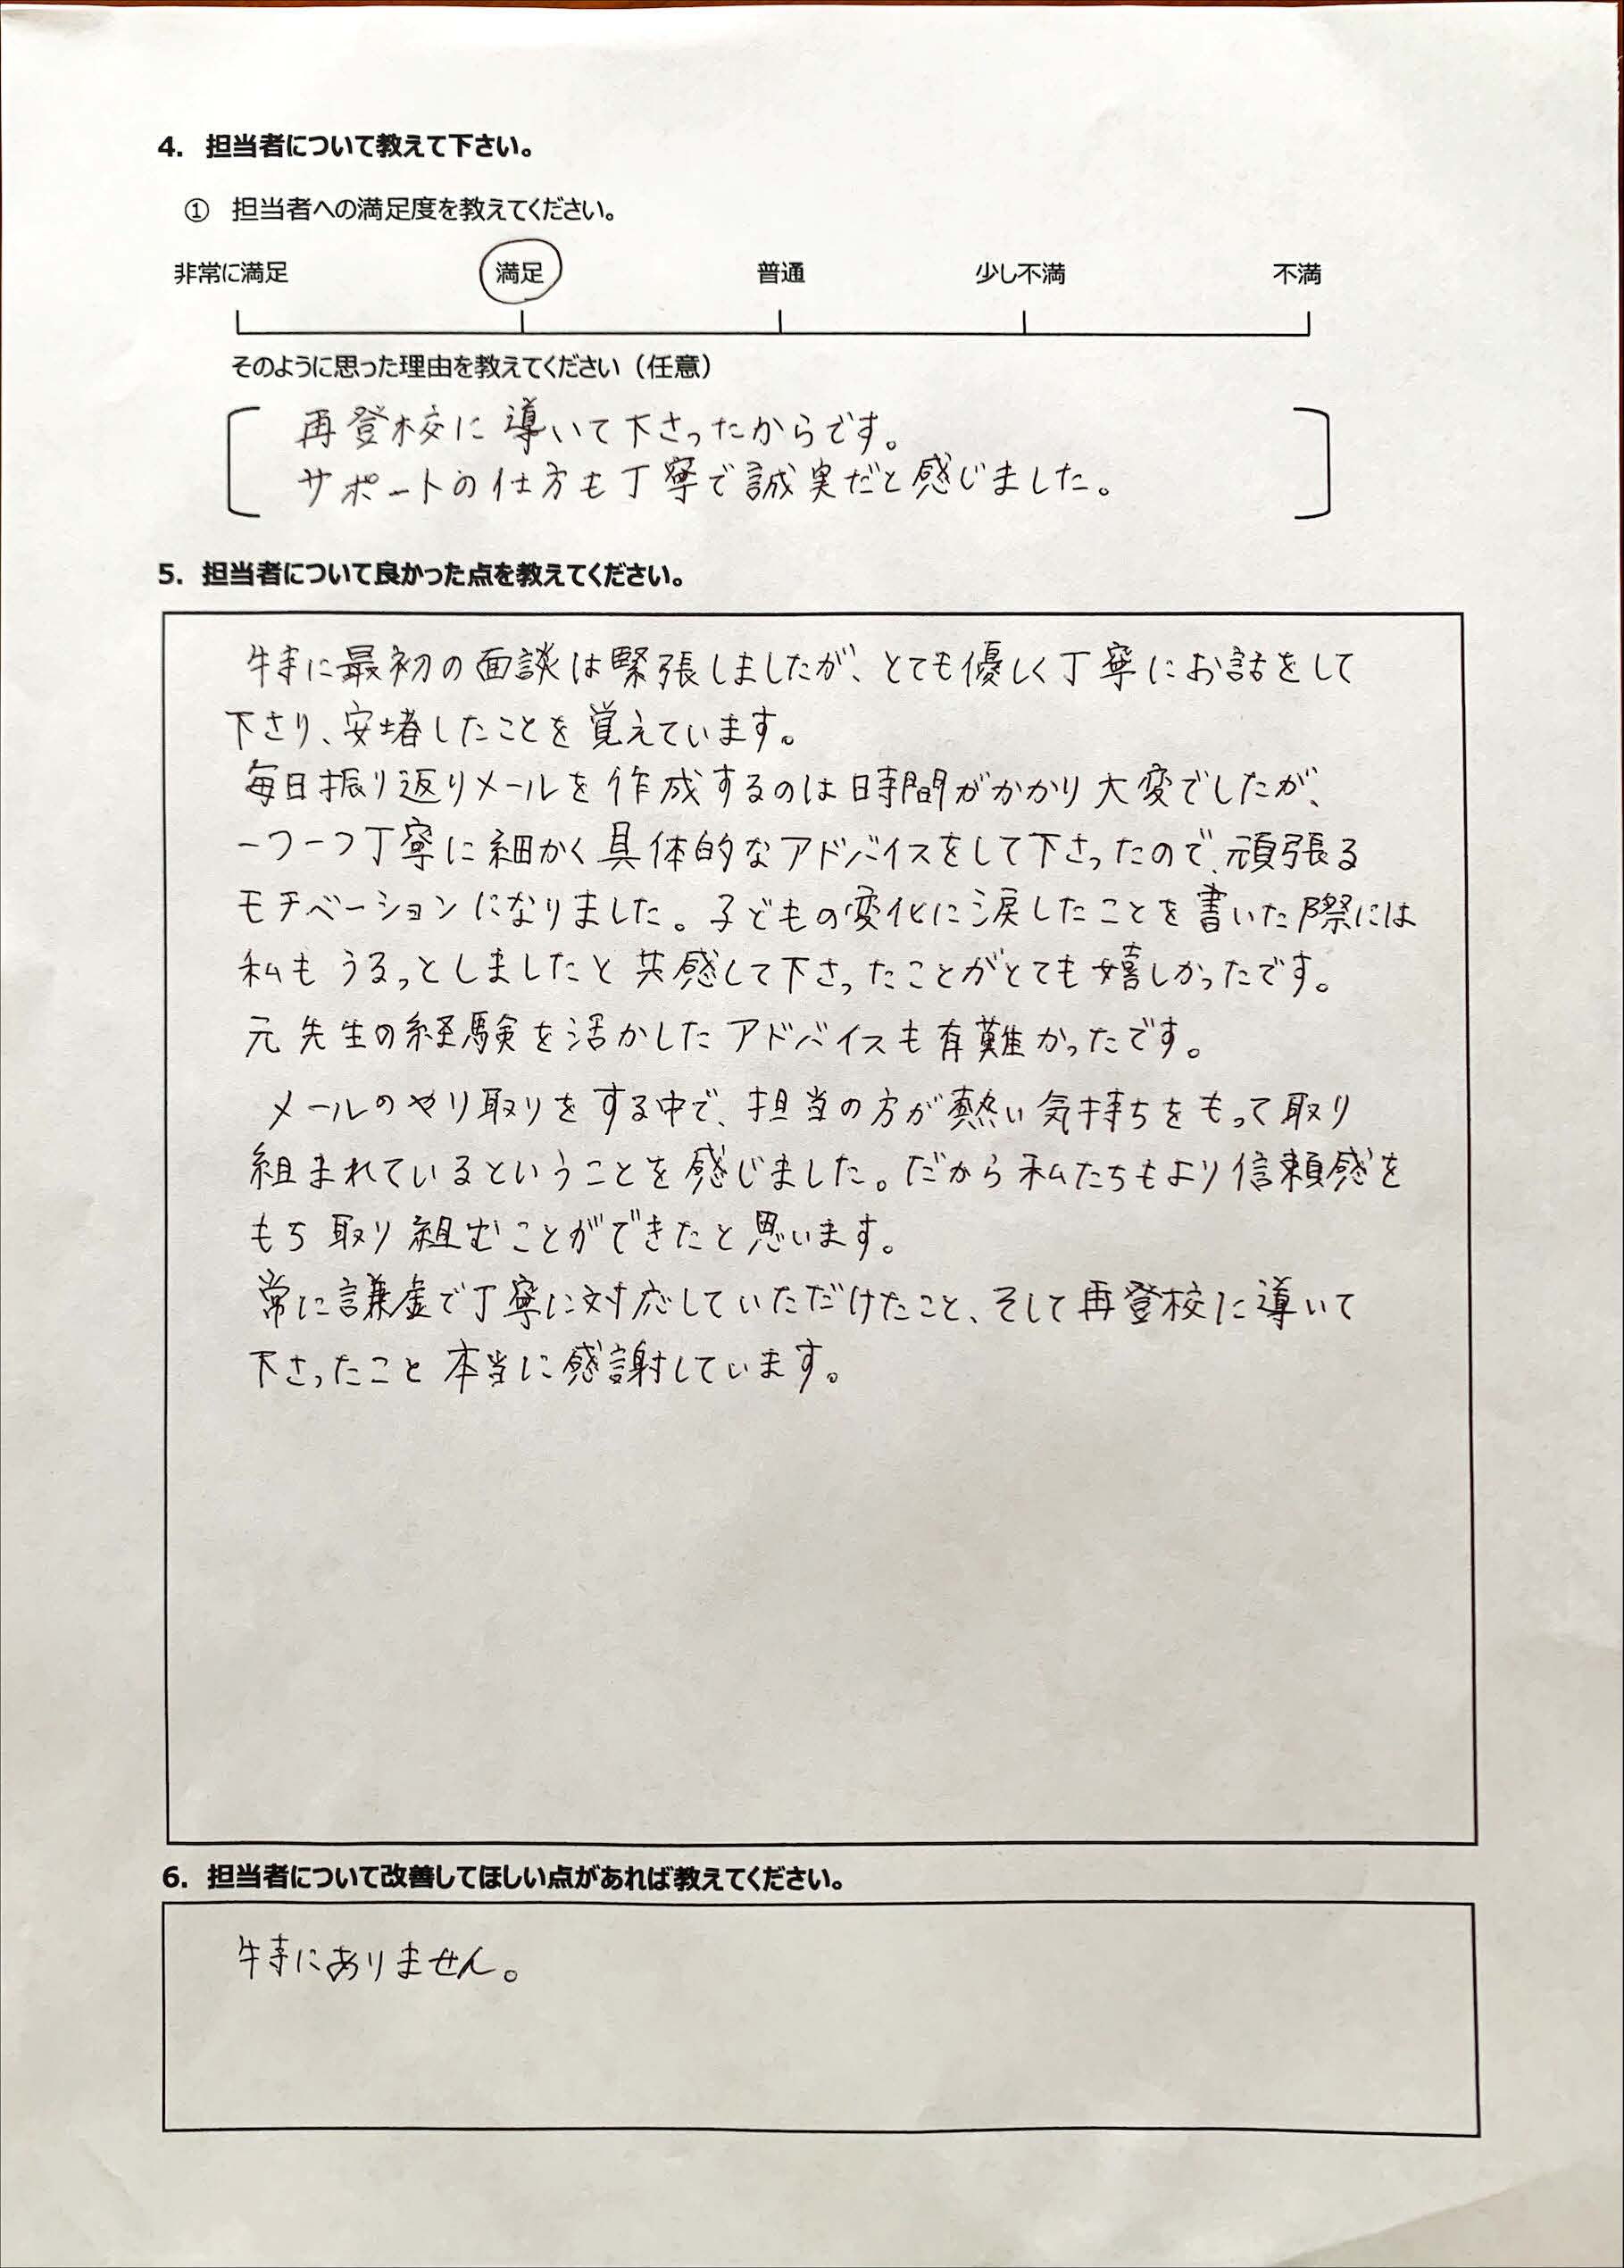 4. 担当者について教えて下さい。
① 担当者への満足度を教えてください。
非常に満足 満足 普通 少し不満 不満
そのように思った理由を教えてください（任意）
再登校に導いて下さったからです。
サポートの仕方も丁寧で誠実だと感じました。
5. 担当者について良かった点を教えてください。
特に最初の面談は緊張しましたが、とても優しく丁寧にお話をして
下さり、安堵したことを覚えています。
毎日振り返りメールを作成するのは時間がかかり大変でしたが、
一つ一つ丁寧に細かく具体的なアドバイスをして下さったので、頑張る
モチベーションになりました。子どもの変化に涙したことを書いた際には
私もうるっとしましたと共感して下さったことがとても嬉しかったです。
元先生の経験を活かしたアドバイスも有難かったです。
メールのやり取りをする中で、担当の方が熱い気持ちをもって取り
組まれているということを感じました。だから私たちもより信頼感を
もち取り組むことができたと思います。
常に謙虚で丁寧に対応していただけたこと、そして再登校に導いて
下さったこと本当に感謝しています。
6. 担当者について改善してほしい点があれば教えてください。
特にありません。